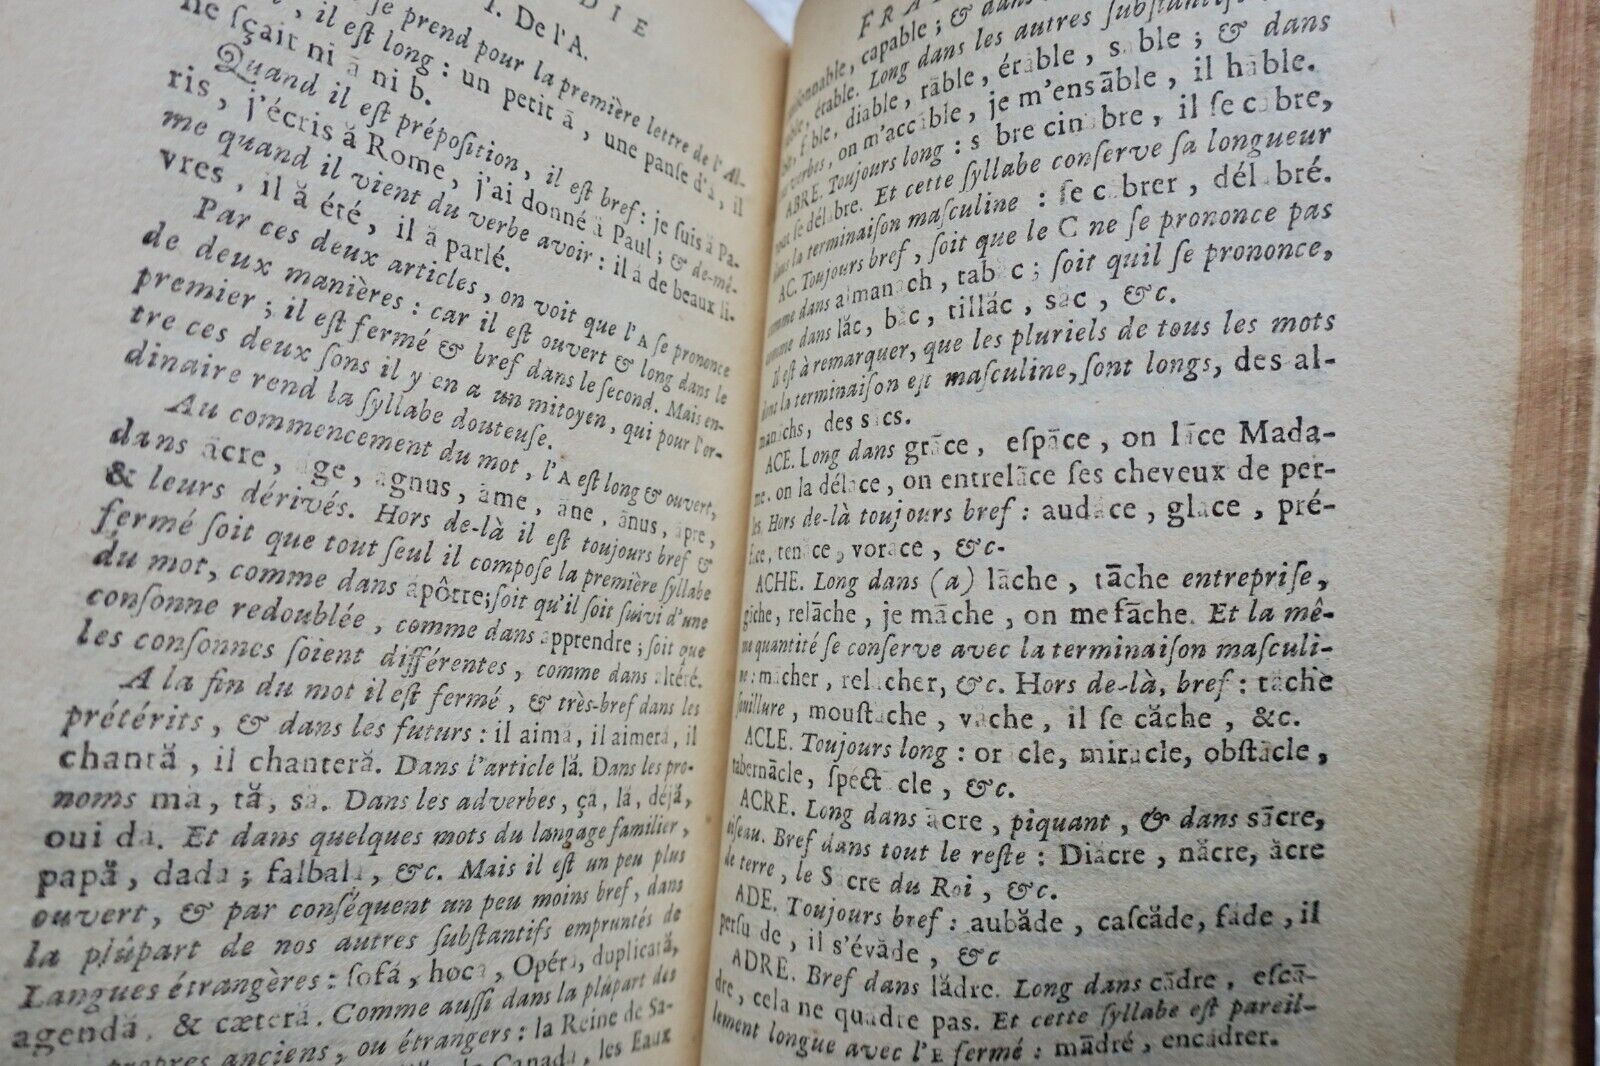 DIE
I. De l'A.
je prend pour la première lettre de l'Al-
, il eſt long : un petit ā, une panſe d'ā, il
ne ſçait ni ā ni b.
Quand il eſt prépoſition, il eſt bref : je ſuis ă Pa-
ris, j'écris ă Rome, j'ai donné ă Paul ; & de-mê-
me quand il vient du verbe avoir : il ă de beaux li-
vres, il ă été, il ă parlé.
Par ces deux articles, on voit que l'A ſe prononce
de deux manières : car il eſt ouvert & long dans le
premier ; il eſt fermé & bref dans le ſecond. Mais en-
tre ces deux ſons il y en a un mitoyen, qui pour l'or-
dinaire rend la ſyllabe douteuſe.
Au commencement du mot, l'A eſt long & ouvert,
dans ācre, age, agnus, āme, āne, ānus, āpre,
& leurs dérivés. Hors de-là il eſt toujours bref &
fermé ſoit que tout ſeul il compoſe la première ſyllabe
du mot, comme dans ăpôtre; ſoit qu'il ſoit ſuivi d'une
conſonne redoublée, comme dans apprendre ; ſoit que
les conſonnes ſoient différentes, comme dans altéré.
A la fin du mot il eſt fermé, & très-bref dans les
prétérits, & dans les futurs : il aimă, il aimeră, il
chantă, il chanteră. Dans l'article lă. Dans les pro-
noms mă, tă, să. Dans les adverbes, çă, lă, déjă,
oui da. Et dans quelques mots du langage familier,
papă, dada ; falbala, &c. Mais il eſt un peu plus
ouvert, & par conſéquent un peu moins bref, dans
la plûpart de nos autres ſubſtantifs empruntés de
Langues étrangères : ſofă, hoca, Opéra, duplicată,
agendă, & cæteră. Comme auſſi dans la plûpart des
propres anciens, ou étrangers : la Reine de Sa-
Canada, les Eaux
FRA
capable ; & dans
étable. Long dans les autres ſubſtantifs
diable, rāble, érable, sable ; & dans
verbes, on m'accable, je m'ensāble, il hāble.
ABRE. Toujours long : s bre cinabre, il ſe cabre,
ſe délabre. Et cette ſyllabe conſerve ſa longueur
dans la terminaiſon maſculine : ſe cabrer, délabré.
AC. Toujours bref, ſoit que le C ne ſe prononce pas
comme dans almanach, tabac ; ſoit quil ſe prononce,
comme dans lăc, băc, tillăc, săc, &c.
Il eſt à remarquer, que les pluriels de tous les mots
dont la terminaiſon eſt maſculine, ſont longs, des al-
manachs, des sacs.
ACE. Long dans grāce, eſpāce, on lāce Mada-
me, on la délace, on entrelāce ſes cheveux de per-
les. Hors de-là toujours bref : audace, glace, pré-
face, tenăce, vorace, &c.
ACHE. Long dans (a) lāche, tāche entrepriſe,
gāche, relāche, je māche, on me fāche. Et la mê-
me quantité ſe conſerve avec la terminaiſon maſculi-
ne : mācher, relacher, &c. Hors de-là, bref : tăche
ſouillure, mouſtache, văche, il ſe căche, &c.
ACLE. Toujours long : oracle, miracle, obſtācle,
tabernācle, ſpect cle, &c.
ACRE. Long dans ācre, piquant, & dans sācre,
oiſeau. Bref dans tout le reſte : Diăcre, năcre, ăcre
de terre, le Sacre du Roi, &c.
ADE. Toujours bref : aubăde, caſcăde, făde, il
perſuade, il s'évăde, &c
ADRE. Bref dans lădre. Long dans cādre, eſcā-
dre, cela ne quādre pas. Et cette ſyllabe eſt pareil-
lement longue avec l'E fermé : mādré, encādrer.